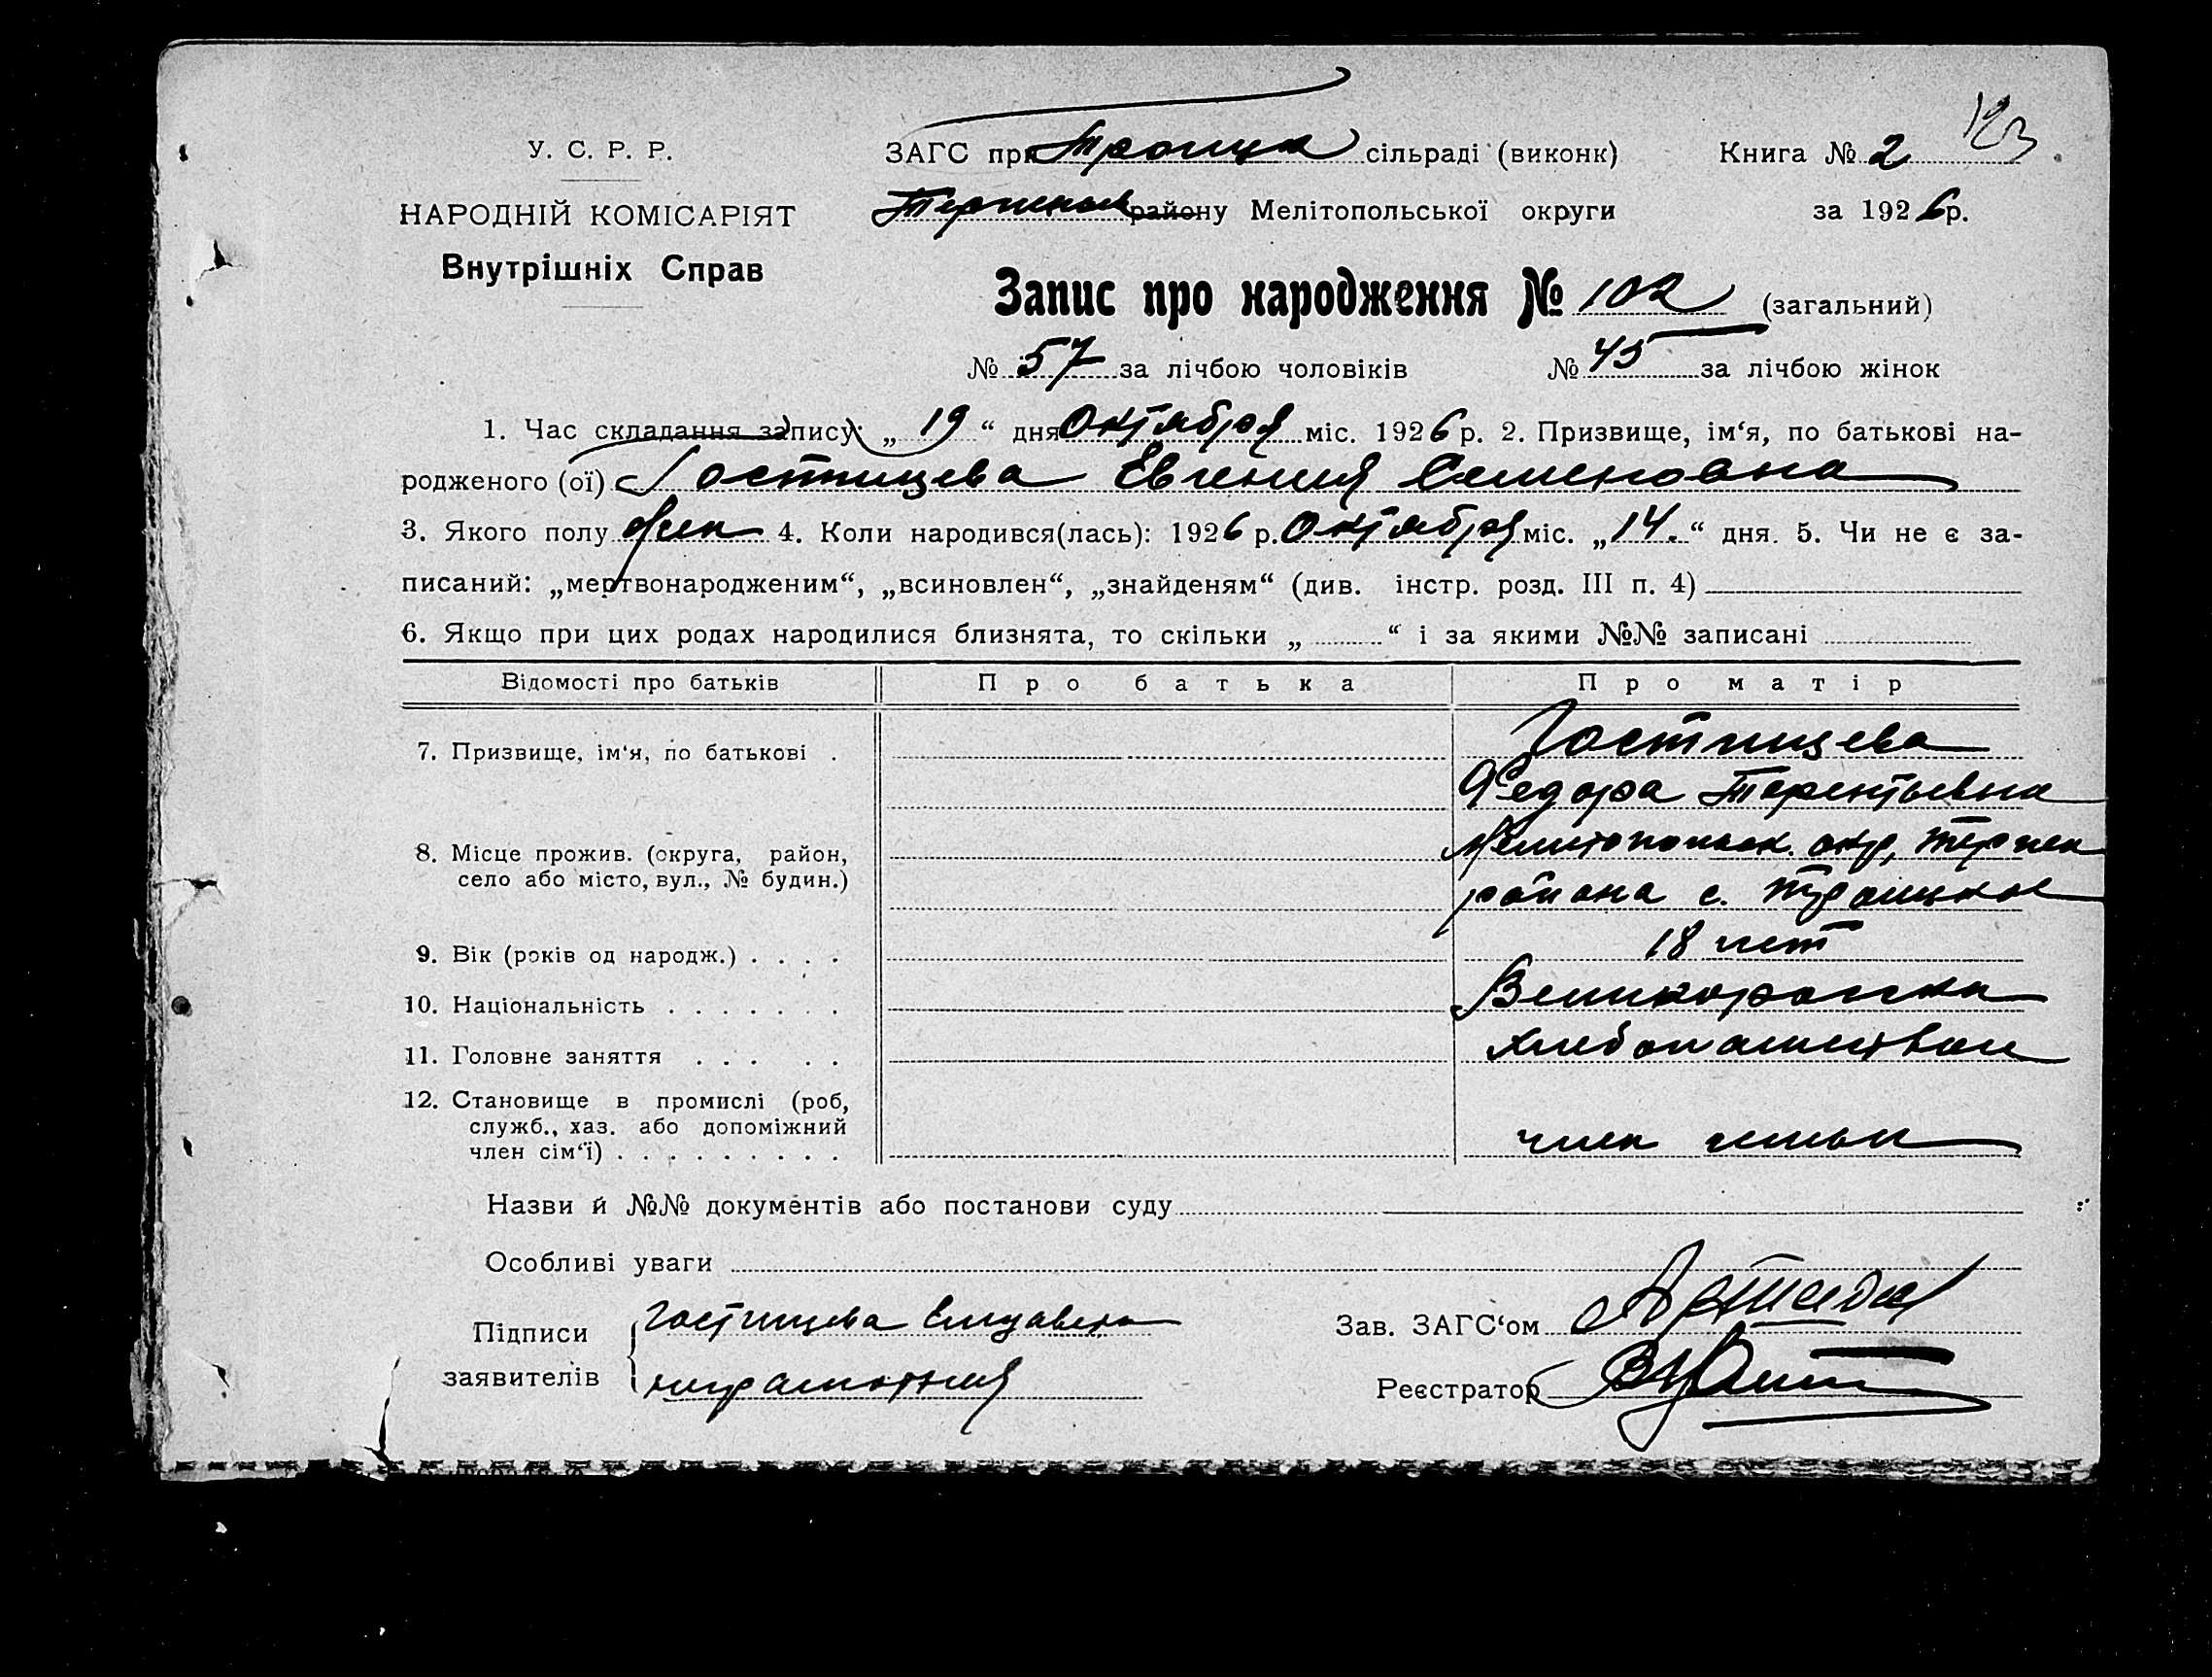 123
У. С. Р. Р.
НАРОДНІЙ КОМІСАРІЯТ
Внутрішніх Справ
ЗАГС при Троицк сільраді (виконк)
Книга № 2
району Мелітопольської округи
за 1926 р.
Запис про народження № 102 (загальний)
№ 57 за лічбою чоловіків № 45 за лічбою жінок
1. Час складання запису: „ 19 “ дня Октября міс. 1926 р. 2. Призвище, ім‘я, по батькові на-
родженого (ої) Гостищева Евгения Семеновна
3. Якого полу жен 4. Коли народився(лась): 1926 р. Октября міс. „14.“ дня. 5. Чи не є за-
писаний: „мертвонародженим“, „всиновлен“, „знайденям“ (див. інстр. розд. III п. 4)
6. Якщо при цих родах народилися близнята, то скільки „ “ і за якими №№ записані
Відомості про батьків Про батька Про матір
7. Призвище, ім‘я, по батькові . Гостищева
Федора Терентьевна
8. Місце прожив. (округа, район, село або місто, вул., № будин.) Мелитопольск. окр, Терпен
района с. Троицкое
9. Вік (років од народж.) . . . . 18 лет
10. Національність . . . . . . . Великоросска
11. Головне заняття . . . . . хлебопашество
12. Становище в промислі (роб,
служб., хаз. або допоміжний
член сім‘ї) . . . . . . . . . член семьи
Назви й №№ документів або постанови суду
Особливі уваги
Підписи заявителів Гостищева Елизавета
неграмотная
Зав. ЗАГС‘ом
Реєстратор